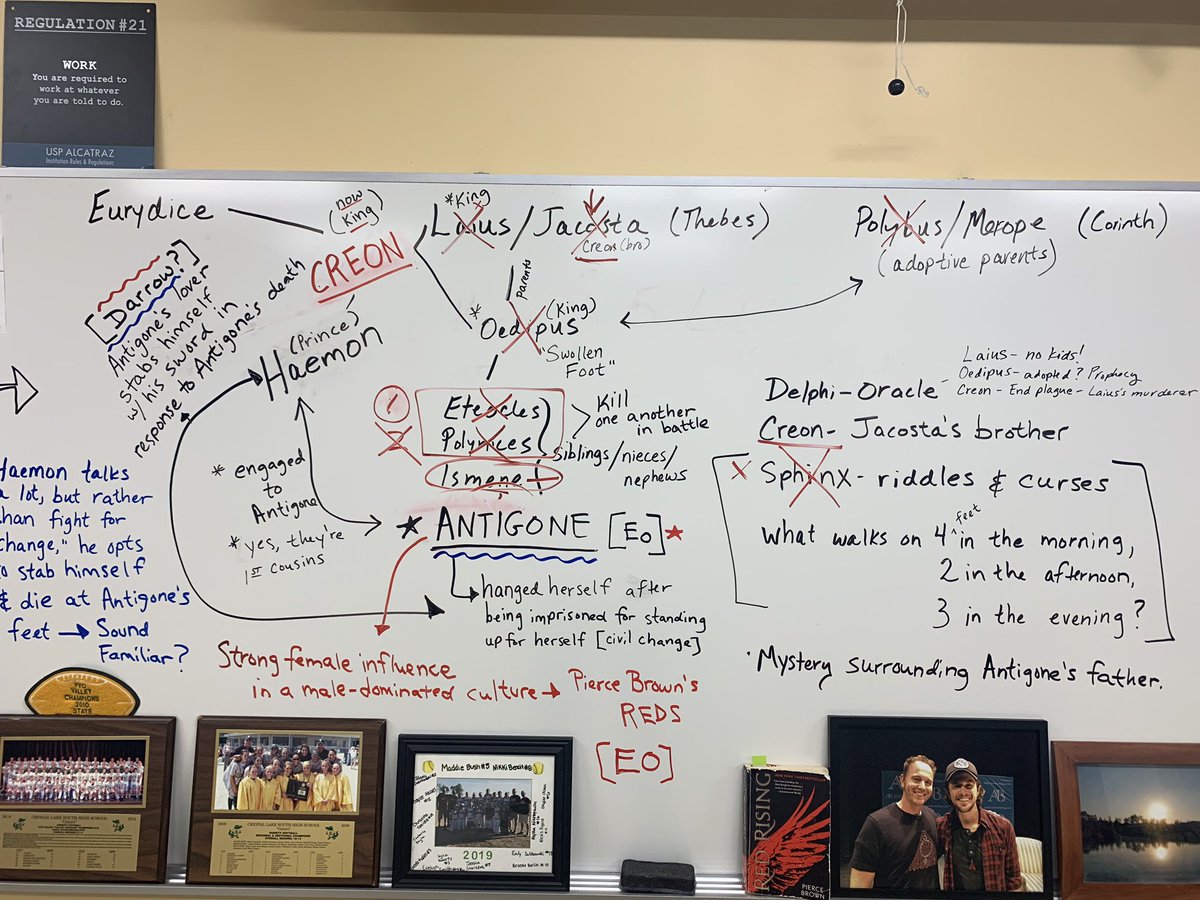 REGULATION #21
WORK
You are required to
work at whatever
you are told to do.
USP ALCATRAZ
Institution Rules & Regulations
Eurydice
(now
King)
CREON
*King
Laius/Jacosta (Thebes)
Creon (bro)
Polybus/Merope (Corinth)
(adoptive parents)
parents
*Oedipus
(King)
"Swollen
Foot"
[Darrow?]
Antigone's lover
stabs himself
w/ his sword in
response to Antigone's death
(Prince)
Haemon
1
Eteocles
2
Polynices
Ismene
Kill
one another
in battle
Siblings/nieces/
nephews
* engaged
to
Antigone
* yes, they're
1st cousins
* ANTIGONE [EO]*
hanged herself after
being imprisoned for standing
up for herself [civil change]
Strong female influence
in a male-dominated culture → Pierce Brown's
REDS
[EO]
Haemon talks
a lot, but rather
than fight for
change," he opts
to stab himself
& die at Antigone's
feet → Sound
Familiar?
Delphi-Oracle-
Laius- no kids!
Oedipus- adopted? Prophecy
Creon- End plague- Laius's murderer
Creon- Jacosta's brother
x Sphinx- riddles & curses
What walks on 4 feet in the morning,
2 in the afternoon,
3 in the evening?
·Mystery surrounding Antigone's father.
VALLEY
CHAMPIONS
2010
STATE
CRYSTAL LAKE SOUTH HIGH SCHOOL
CRYSTAL LAKE SOUTH HIGH SCHOOL
2019
RED RISING
PIERCE
BROWN